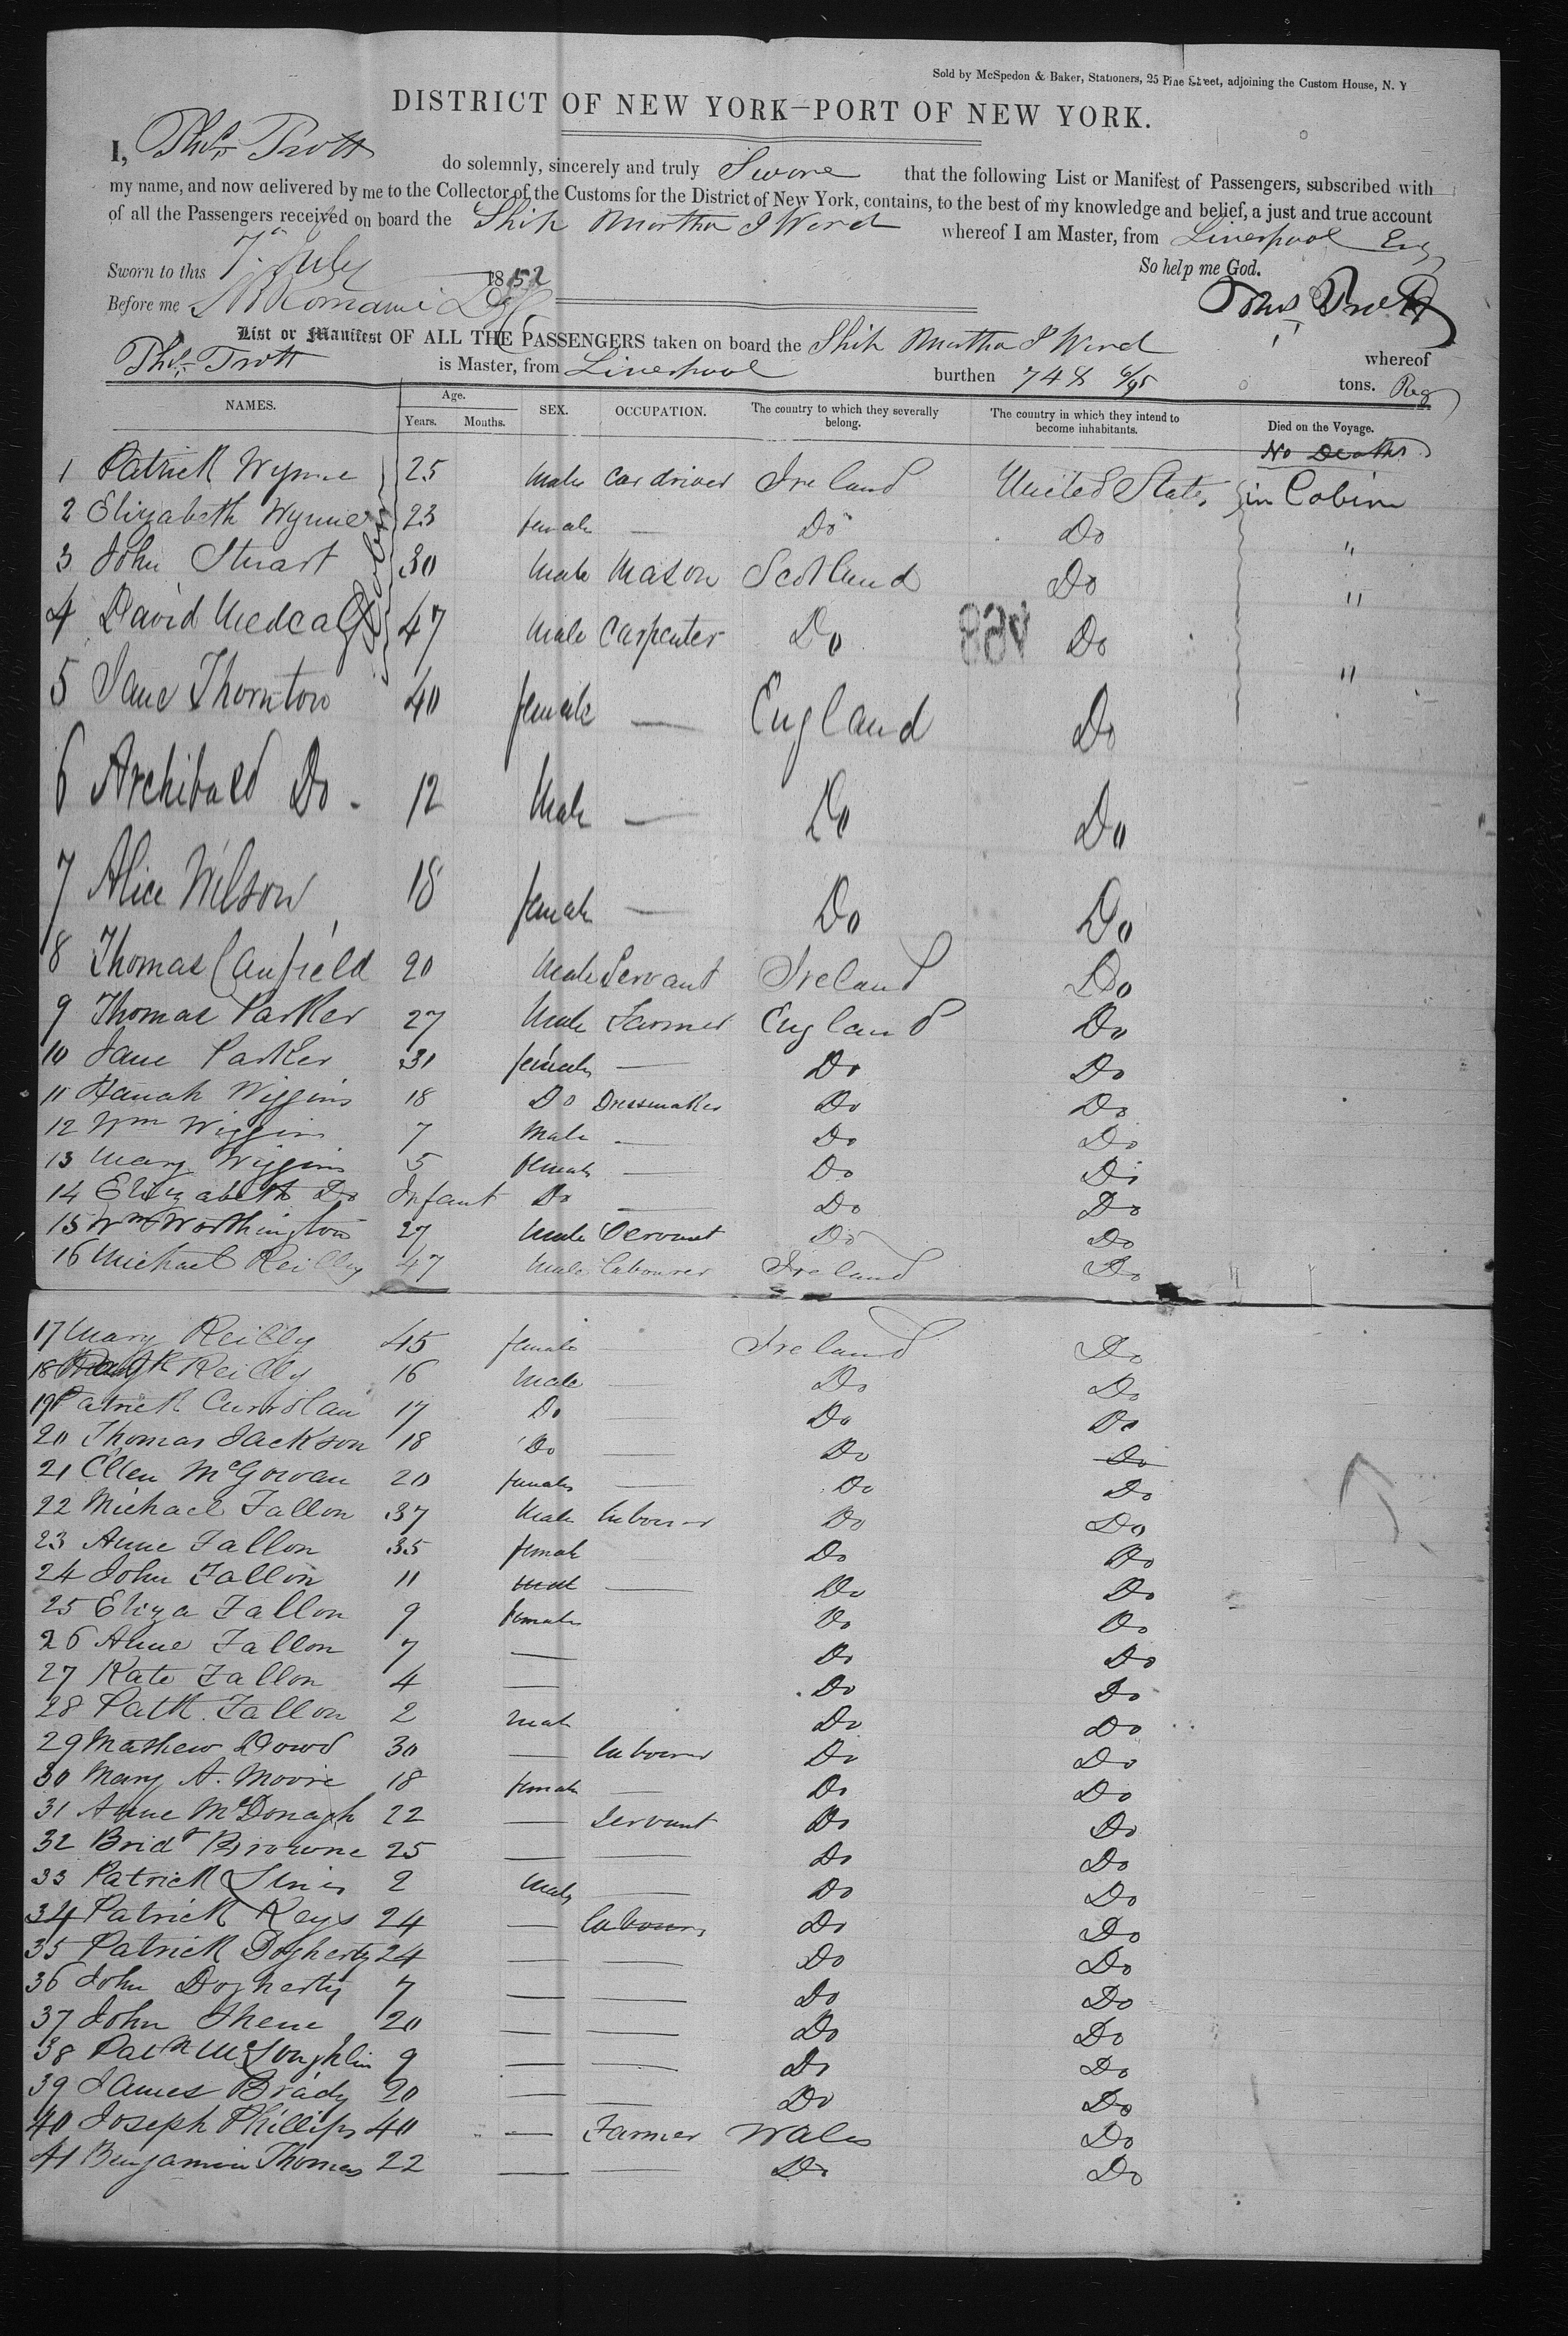 Sold by McSpedon & Baker, Stationers, 25 Pine Street, adjoining the Custom House, N. Y
DISTRICT OF NEW YORK—PORT OF NEW YORK.
I, Thos Trott do solemnly, sincerely and truly Swore that the following List or Manifest of Passengers, subscribed with
my name, and now delivered by me to the Collector of the Customs for the District of New York, contains, to the best of my knowledge and belief, a just and true account
of all the Passengers received on board the Ship Martha J Ward whereof I am Master, from Liverpool Eng
Sworn to this 7th July 1852 So help me God.
Before me Thos Trott
List or Manifest OF ALL THE PASSENGERS taken on board the Ship Martha J Ward whereof
Thos Trott is Master, from Liverpool burthen 748 6/95 tons. Reg
NAMES. Age. Years. Months. SEX. OCCUPATION. The country to which they severally belong. The country in which they intend to become inhabitants. Died on the Voyage.
No Deaths
1 Patrick Wynne 25 Male Car driver Ireland United States in Cabin
2 Elizabeth Wynne 23 female — Do Do "
3 John Stuart 30 Male Mason Scotland Do "
4 David Medcalf 47 Male Carpenter Do Do "
5 Jane Thornton 40 female — England Do
6 Archibald Do. 12 Male — Do Do
7 Alice Wilson 18 female — Do Do
8 Thomas Canfield 20 Male Servant Ireland Do
9 Thomas Parker 27 Male Farmer England Do
10 Jane Parker 31 female — Do Do
11 Hanah Wiggins 18 Do Dressmaker Do Do
12 Wm Wiggins 7 Male — Do Do
13 Mary Wiggins 5 female — Do Do
14 Elizabeth Do Infant Do — Do Do
15 Wm Worthington 27 Male Servant Do Do
16 Michael Reilly 47 Male labourer Ireland Do
17 Mary Reilly 45 female — Ireland Do
18 Reilly 16 Male — Do Do
19 Patrick Currolan 17 Do — Do Do
20 Thomas Jackson 18 Do — Do Do
21 Ellen McGowan 20 female — Do Do
22 Michael Fallon 37 Male labourer Do Do
23 Anne Fallon 35 female — Do Do
24 John Fallon 11 Male — Do Do
25 Eliza Fallon 9 female Do Do
26 Anne Fallon 7 — Do Do
27 Kate Fallon 4 — Do Do
28 Patk Fallon 2 Male Do Do
29 Mathew Dowd 30 — labourer Do Do
30 Mary A. Moore 18 female — Do Do
31 Anne McDonagh 22 — Servant Do Do
32 Bridt Browne 25 — — Do Do
33 Patrick 2 Male — Do Do
34 Patrick Keys 24 — labourer Do Do
35 Patrick Dogherty 24 — — Do Do
36 John Dogherty 7 — — Do Do
37 John 20 — — Do Do
38 Patk McLoughlin 9 — — Do Do
39 James Brady 20 — — Do Do
40 Joseph Phillips 40 — Farmer Wales Do
41 Benjamin Thomas 22 — — Do Do